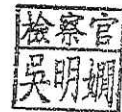 檢察官
吳明嫺